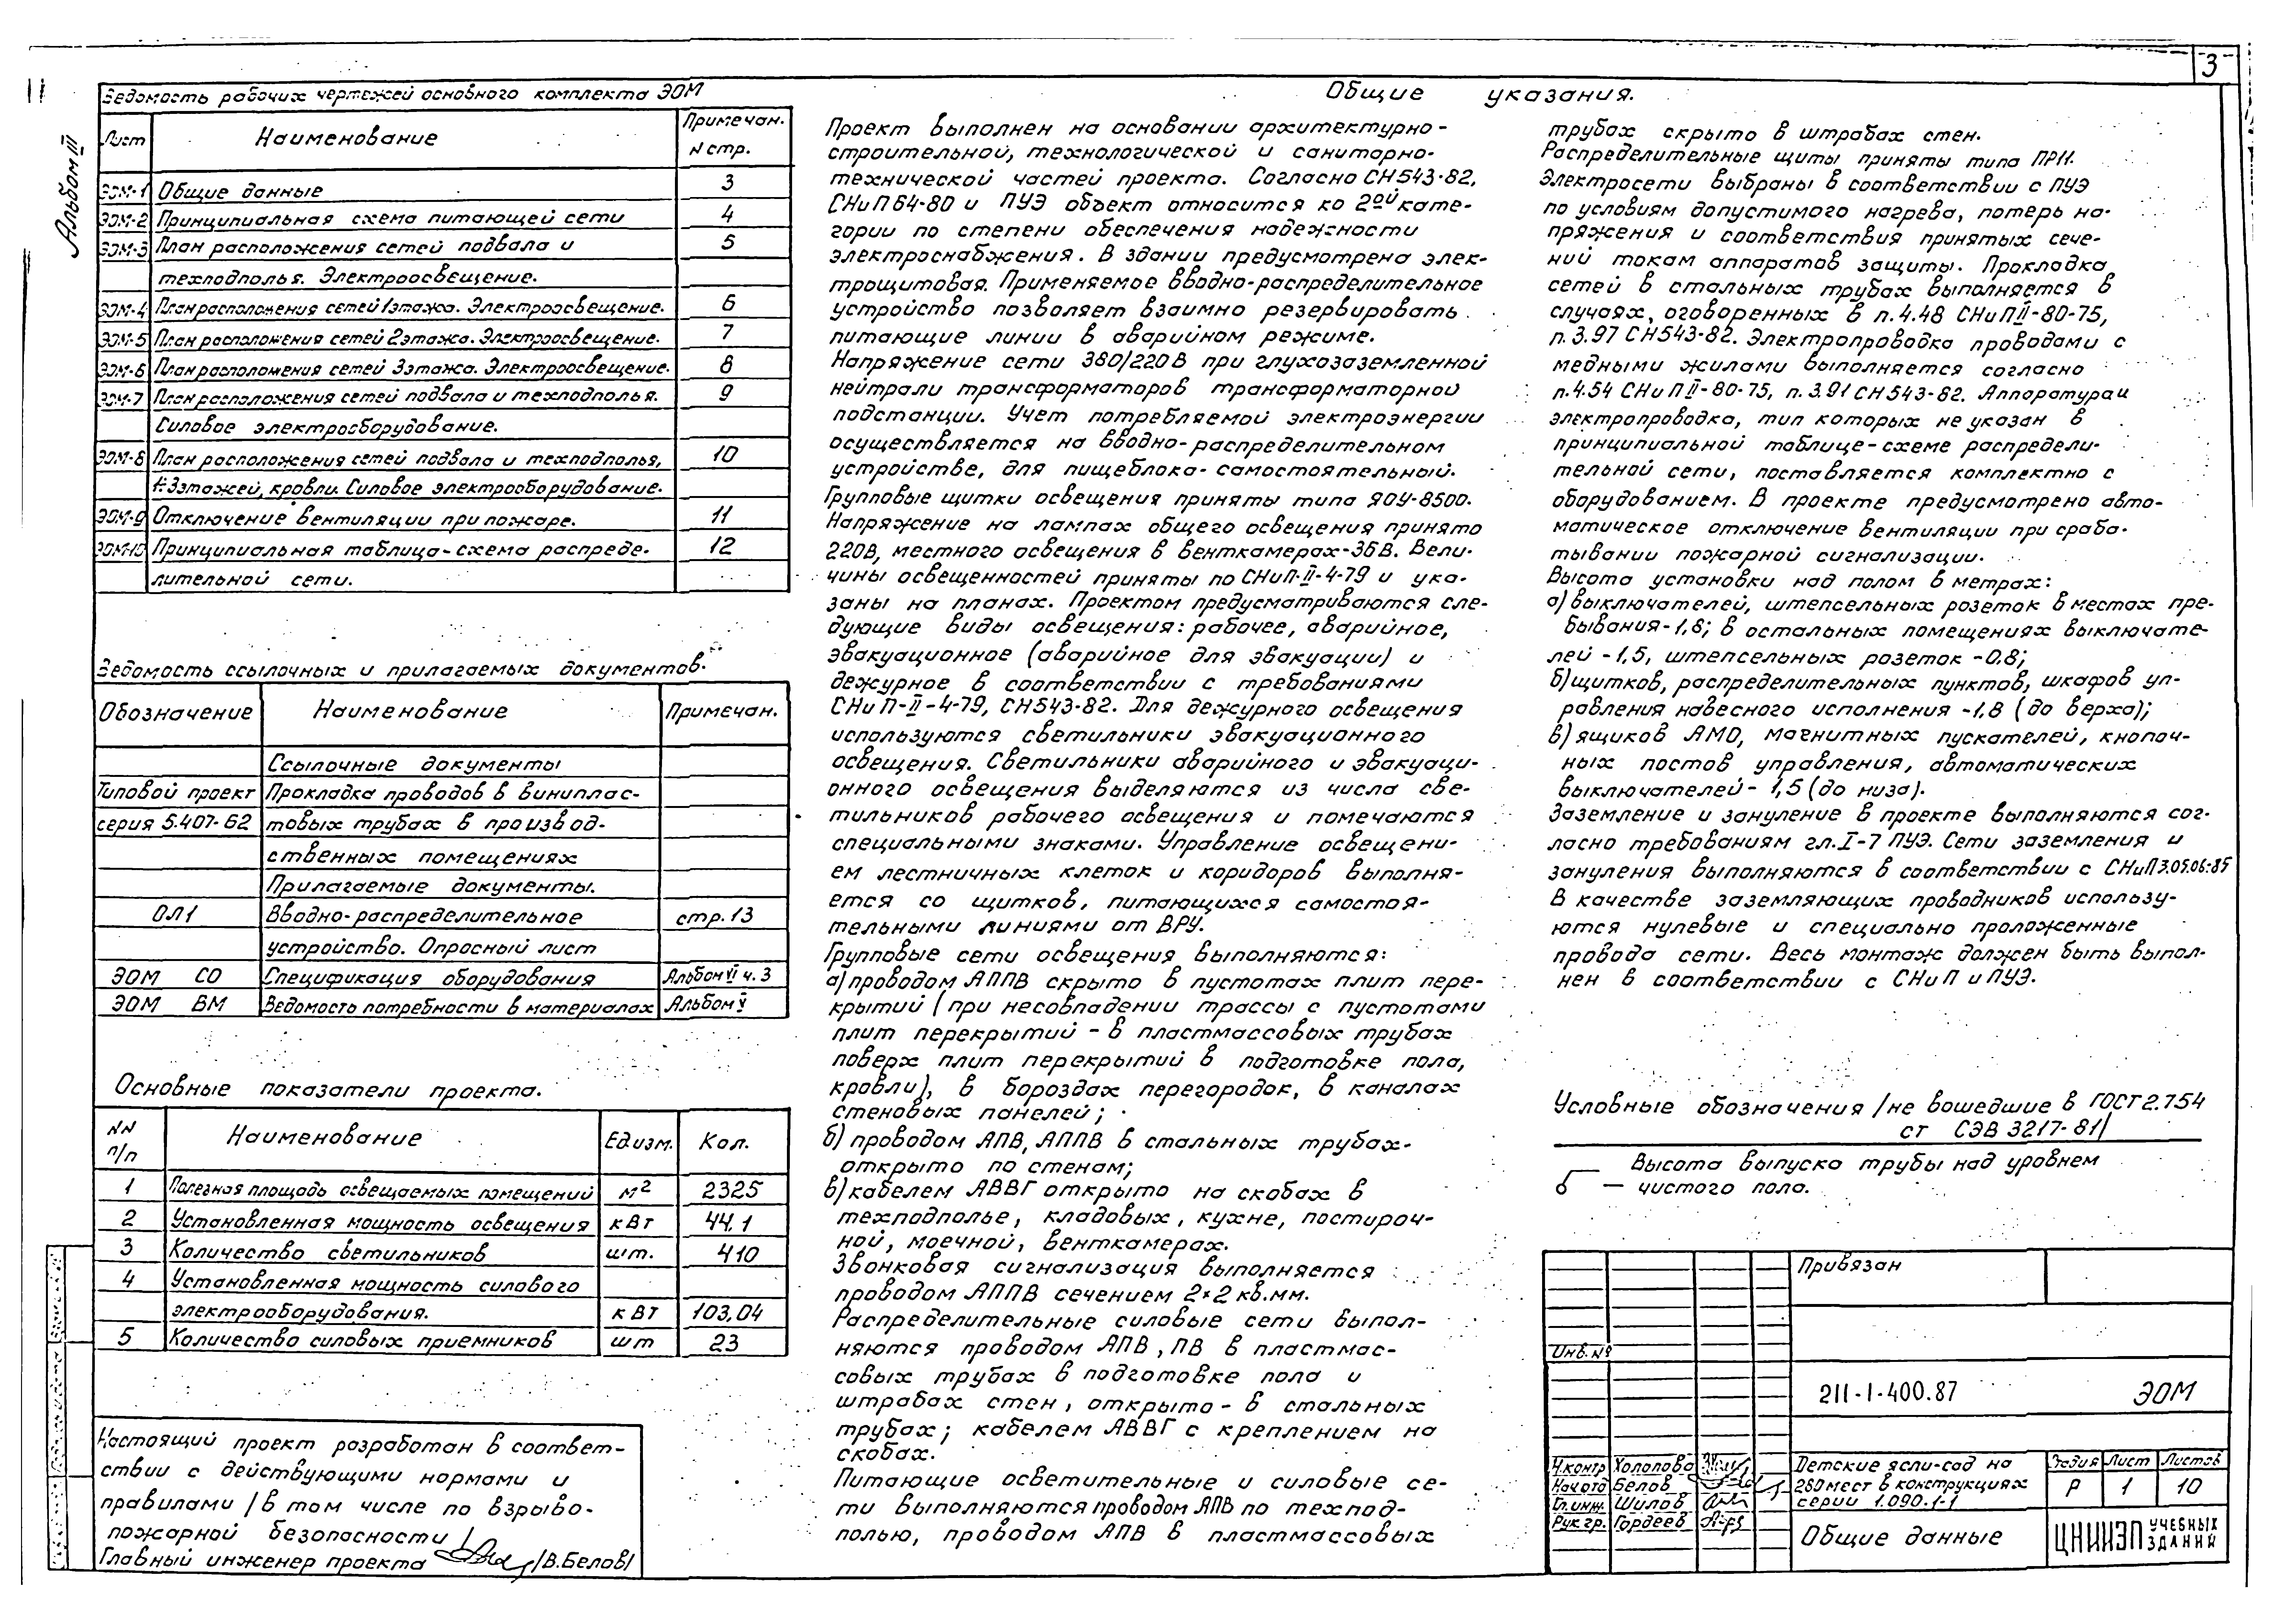 3
Альбом III
Ведомость рабочих чертежей основного комплекта ЭОМ
Лист Наименование Примечан. N стр.
ЭОМ-1 Общие данные 3
ЭОМ-2 Принципиальная схема питающей сети 4
ЭОМ-3 План расположения сетей подвала и 5
техподполья. Электроосвещение.
ЭОМ-4 План расположения сетей 1этажа. Электроосвещение. 6
ЭОМ-5 План расположения сетей 2этажа. Электроосвещение. 7
ЭОМ-6 План расположения сетей 3этажа. Электроосвещение. 8
ЭОМ-7 План расположения сетей подвала и техподполья. 9
Силовое электрооборудование.
ЭОМ-8 План расположения сетей подвала и техподполья, 10
1÷3этажей, кровли. Силовое электрооборудование.
ЭОМ-9 Отключение вентиляции при пожаре. 11
ЭОМ-10 Принципиальная таблица-схема распреде- 12
лительной сети.
Ведомость ссылочных и прилагаемых документов.
Обозначение Наименование Примечан.
Ссылочные документы
Типовой проект Прокладка проводов в виниплас-
серия 5.407-62 товых трубах в производ-
ственных помещениях
Прилагаемые документы.
ОЛ1 Вводно-распределительное стр. 13
устройство. Опросный лист
ЭОМ СО Спецификация оборудования Альбом VI ч. 3
ЭОМ ВМ Ведомость потребности в материалах Альбом V
Основные показатели проекта.
NN п/п Наименование Ед изм. Кол.
1 Полезная площадь освещаемых помещений м² 2325
2 Установленная мощность освещения кВт 44.1
3 Количество светильников шт. 410
4 Установленная мощность силового
электрооборудования. кВт 103,04
5 Количество силовых приемников шт 23
Настоящий проект разработан в соответ-
ствии с действующими нормами и
правилами /в том числе по взрыво-
пожарной безопасности/
Главный инженер проекта /В.Белов/
Общие указания.
Проект выполнен на основании архитектурно-
строительной, технологической и санитарно-
технической частей проекта. Согласно СН543-82,
СНиП 64-80 и ПУЭ объект относится ко 2ой кате-
гории по степени обеспечения надежности
электроснабжения. В здании предусмотрена элек-
трощитовая. Применяемое вводно-распределительное
устройство позволяет взаимно резервировать
питающие линии в аварийном режиме.
Напряжение сети 380/220В при глухозаземленной
нейтрали трансформаторов трансформаторной
подстанции. Учет потребляемой электроэнергии
осуществляется на вводно-распределительном
устройстве, для пищеблока-самостоятельный.
Групповые щитки освещения приняты типа ЯОУ-8500.
Напряжение на лампах общего освещения принято
220В, местного освещения в венткамерах-36В. Вели-
чины освещенностей приняты по СНиП-II-4-79 и ука-
заны на планах. Проектом предусматриваются сле-
дующие виды освещения: рабочее, аварийное,
эвакуационное (аварийное для эвакуации) и
дежурное в соответствии с требованиями
СНиП-II-4-79, СН543-82. Для дежурного освещения
используются светильники эвакуационного
освещения. Светильники аварийного и эвакуаци-
онного освещения выделяются из числа све-
тильников рабочего освещения и помечаются
специальными знаками. Управление освещени-
ем лестничных клеток и коридоров выполня-
ется со щитков, питающихся самостоя-
тельными линиями от ВРУ.
Групповые сети освещения выполняются:
а) проводом АППВ скрыто в пустотах плит пере-
крытий (при несовпадении трассы с пустотами
плит перекрытий - в пластмассовых трубах
поверх плит перекрытий в подготовке пола,
кровли), в бороздах перегородок, в каналах
стеновых панелей;
б) проводом АПВ, АППВ в стальных трубах-
открыто по стенам;
в) кабелем АВВГ открыто на скобах в
техподполье, кладовых, кухне, постироч-
ной, моечной, венткамерах.
Звонковая сигнализация выполняется
проводом АППВ сечением 2×2 кв.мм.
Распределительные силовые сети выпол-
няются проводом АПВ, ПВ в пластмас-
совых трубах в подготовке пола и
штрабах стен, открыто - в стальных
трубах; кабелем АВВГ с креплением на
скобах.
Питающие осветительные и силовые се-
ти выполняются проводом АПВ по техпод-
полью, проводом АПВ в пластмассовых
трубах скрыто в штрабах стен.
Распределительные щиты приняты типа ПР11.
Электросети выбраны в соответствии с ПУЭ
по условиям допустимого нагрева, потерь на-
пряжения и соответствия принятых сече-
ний токам аппаратов защиты. Прокладка
сетей в стальных трубах выполняется в
случаях, оговоренных в п.4.48 СНиПII-80-75,
п.3.97 СН543-82. Электропроводка проводами с
медными жилами выполняется согласно
п.4.54 СНиПII-80-75, п.3.91 СН543-82. Аппаратура и
электропроводка, тип которых не указан в
принципиальной таблице-схеме распредели-
тельной сети, поставляется комплектно с
оборудованием. В проекте предусмотрено авто-
матическое отключение вентиляции при сраба-
тывании пожарной сигнализации.
Высота установки над полом в метрах:
а) выключателей, штепсельных розеток в местах пре-
бывания-1,8; в остальных помещениях выключате-
лей -1,5, штепсельных розеток -0,8;
б) щитков, распределительных пунктов, шкафов уп-
равления навесного исполнения -1,8 (до верха);
в) ящиков АМО, магнитных пускателей, кнопоч-
ных постов управления, автоматических
выключателей- 1,5 (до низа).
Заземление и зануление в проекте выполняются сог-
ласно требованиям гл.I-7 ПУЭ. Сети заземления и
зануления выполняются в соответствии с СНиП3.05.06-85
В качестве заземляющих проводников использу-
ются нулевые и специально проложенные
провода сети. Весь монтаж должен быть выпол-
нен в соответствии с СНиП и ПУЭ.
Условные обозначения /не вошедшие в ГОСТ 2.754
ст СЭВ 3217-81/
Высота выпуска трубы над уровнем
— чистого пола.
Привязан
Инв. №
211-1-400.87 ЭОМ
Н.контр Холопова
Нач.отд Белов
Гл.инж. Шилов
Рук.гр. Гордеев
Детские ясли-сад на
280 мест в конструкциях
серии 1.090.1-1
Стадия Лист Листов
Р 1 10
Общие данные
ЦНИИЭП УЧЕБНЫХ ЗДАНИЙ